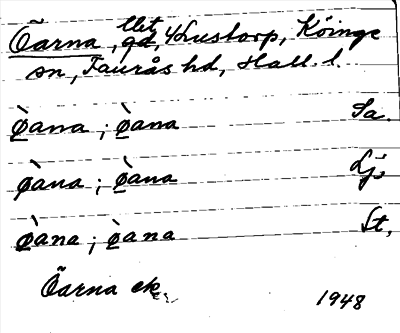 Öarna, gd, Ljustorp, Köinge
sn, Faurås hd, Hall. l.
ò̱ana ; ò̱ana Sa.
ò̱ana ; ò̱ana Lj.
ò̱ana ; ò̱ana St.
Öarna ek.
1948